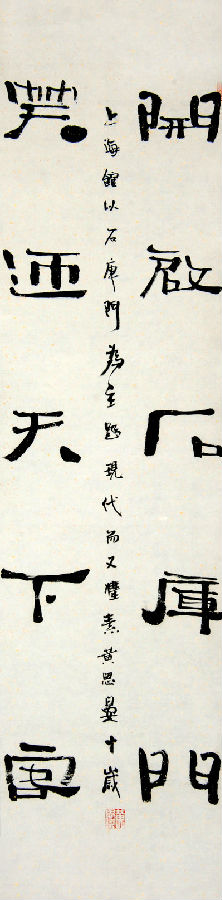 開啟石庫門
上海館以石庫門為主題現代而又樸素黄思十歲
笑迎天下客